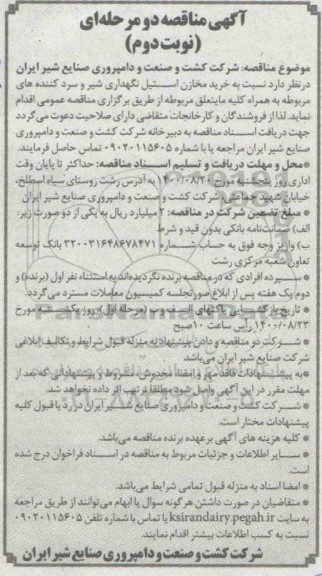 آگهی مناقصه دو مرحله‌ای
(نوبت دوم)
موضوع مناقصه: شرکت کشت و صنعت و دامپروری صنایع شیر ایران
درنظر دارد نسبت به خرید مخازن استیل نگهداری شیر و سرد کننده های
مربوطه به همراه کلیه مایتعلق مربوطه از طریق برگزاری مناقصه عمومی اقدام
نماید. لذا از فروشندگان و کارخانجات متقاضی دارای صلاحیت دعوت می‌گردد
جهت دریافت اسناد مناقصه به دبیرخانه شرکت کشت و صنعت و دامپروری
صنایع شیر ایران مراجعه یا با شماره ۰۹۰۲۰۱۱۵۶۰۵ تماس حاصل فرمایند.
*محل و مهلت دریافت و تسلیم اسناد مناقصه: حداکثر تا پایان وقت
اداری روز مورخ ۱۴۰۰/۰۸/۲۰ به آدرس رشت روستای سیاه اسطلخ،
خیابان شهید شرکت کشت و صنعت و دامپروری صنایع شیر ایران
*مبلغ تضمین شرکت در مناقصه: ۲ میلیارد ریال به یکی از دو صورت زیر:
الف) ضمانت‌نامه بانکی بدون قید و شرط
ب) واریز وجه فوق به حساب شماره ۳۳۰۰۳۱۶۴۸۶۷۸۴۷۱ بانک توسعه
تعاون شعبه مرکزی رشت
* سپرده افرادی که در مناقصه برنده نگردیده‌اند به استثناء نفر اول (برنده) و
دوم یک هفته پس از ابلاغ صورتجلسه کمیسیون معاملات مسترد می‌گردد.
* تاریخ بازگشایی پاکتهای (مرحله اول)، روز مورخ
۱۴۰۰/۰۸/۲۳ رأس ساعت ۱۰ صبح
* شرکت در مناقصه و دادن پیشنهاد به منزله قبول شرایط و تکالیف ابلاغی
شرکت صنایع شیر ایران می‌باشد
* به پیشنهادات فاقد مهر و امضاء مخدوش، مشروط و پیشنهاداتی که بعد از
مهلت مقرر در این آگهی واصل شود مطلقا ترتیب اثر داده نخواهد شد.
* شرکت کشت و صنعت و دامپروری صنایع شیر ایران در رد یا قبول کلیه
پیشنهادات مختار است.
* کلیه هزینه های آگهی بر عهده برنده مناقصه می‌باشد.
* سایر اطلاعات و جزئیات مربوط به مناقصه در اسناد فراخوان درج شده
است.
* امضا اسناد به منزله قبول تمامی شرایط می‌باشد.
* متقاضیان در صورت داشتن هرگونه سوال یا ابهام می‌توانند از طریق مراجعه
به سایت ksirandairy.pegah.ir یا تماس با شماره تلفن ۰۹۰۲۰۱۱۵۶۰۵
نسبت به کسب اطلاعات بیشتر اقدام نمایند.
شرکت کشت و صنعت و دامپروری صنایع شیر ایران